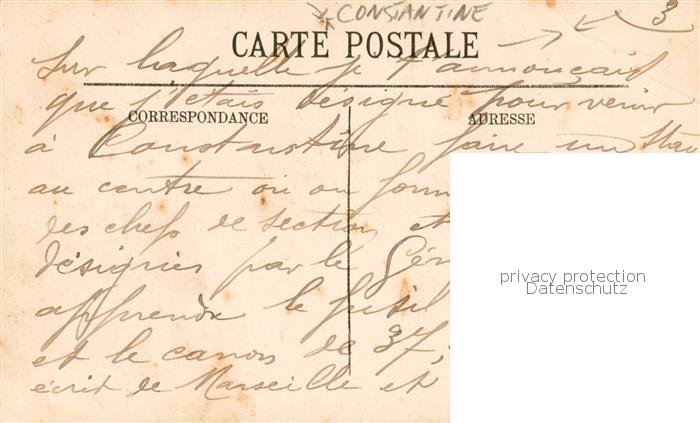 CONSTANTINE
3
CARTE POSTALE
Sur laquelle je t'annonçais
que j'étais désigné pour venir
CORRESPONDANCE ADRESSE
à Constantine faire un
au centre où on form
des chefs de section et
désignés par le Gén
apprendre le fusil
et le canon de 37,
écrit de Marseille et
privacy protection
Datenschutz